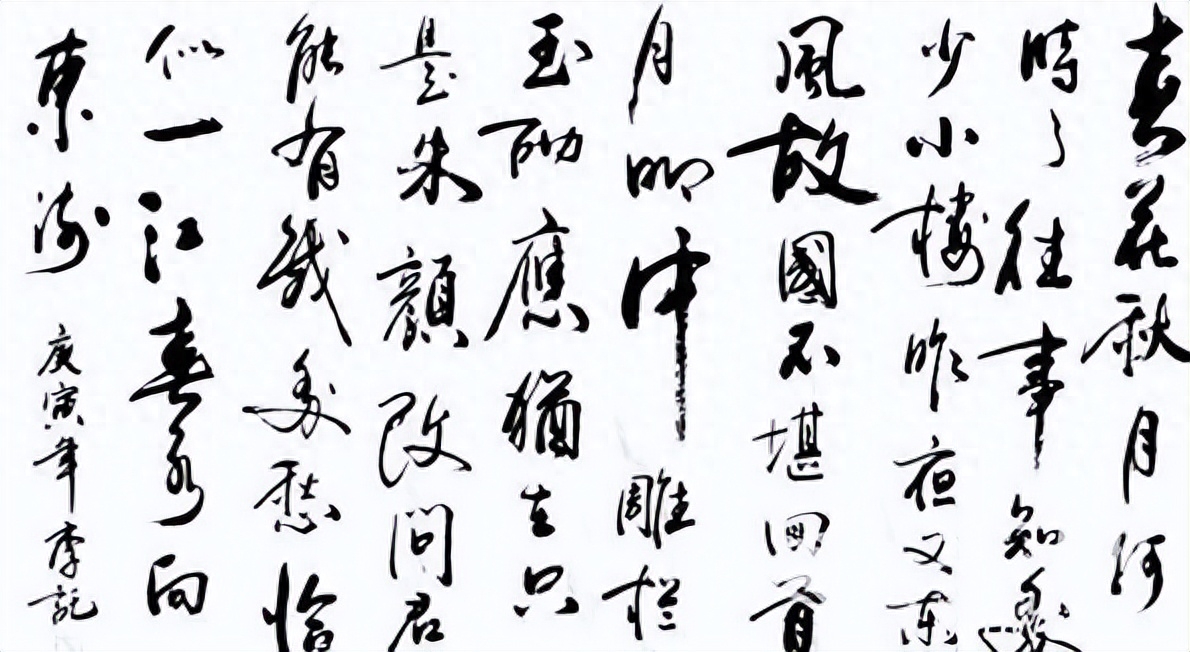 春花秋月何
時了往事知多
少小樓昨夜又東
風故國不堪回首
月明中雕栏
玉砌應猶在只
是朱顏改問君
能有幾多愁恰
似一江春水向
東流
庚寅年李